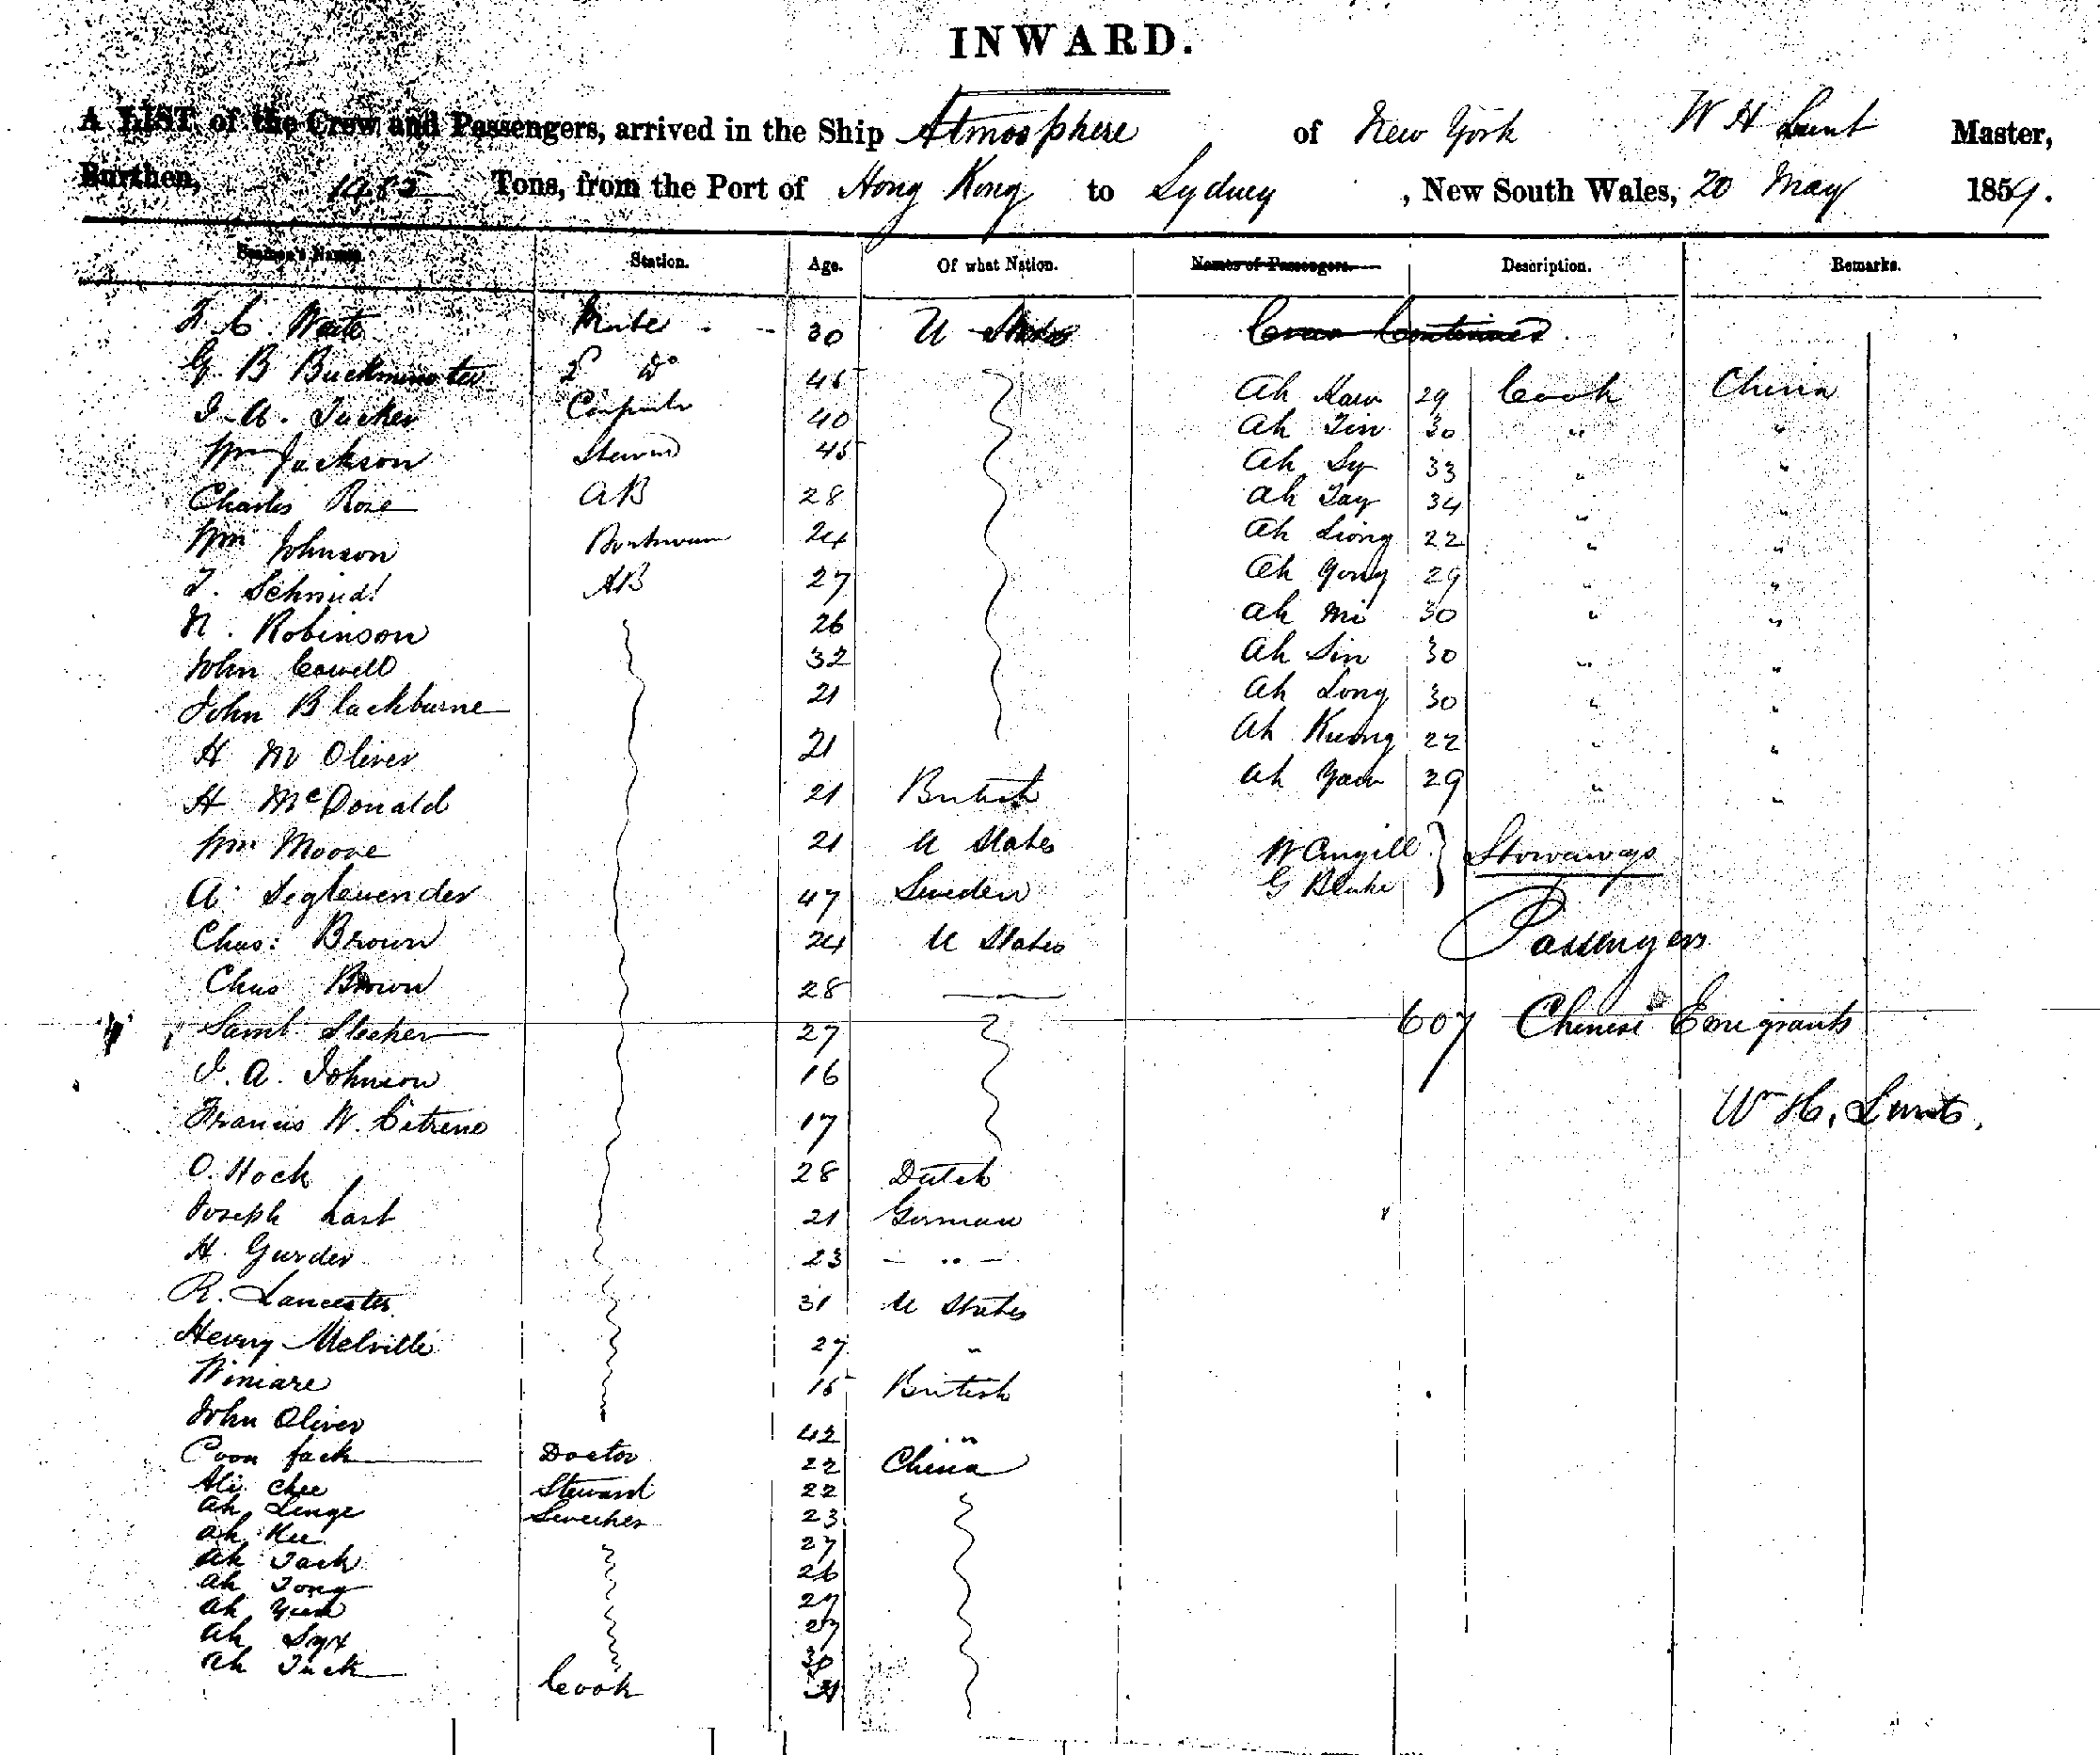 INWARD.
A LIST of the Crew and Passengers, arrived in the Ship Atmosphere of New York W H Lunt Master,
Burthen, 1485 Tons, from the Port of Hong Kong to Sydney, New South Wales, 20 May 1859.
Seamen's Names. Station. Age. Of what Nation. Names of Passengers. Description. Remarks.
Waite Mate 30 U States Crew Continued
G. B Buckminster 2 do 45
J. A. Tucker Carpenter 40
Wm Jackson Steward 45
Charles Rose AB 28
Wm Johnson Boatswain 24
T. Schmidt AB 27
N. Robinson 26
John Cowell 32
John Blackburne 21
H M Oliver 21
H McDonald 21 British
Wm Moore 21 U States
A. Seglevender 47 Sweden
Chas: Brown 24 U States
Chas Brown 28
Saml Slecker 27
J. A. Johnson 16
Francis W. 17
O. Hock 28 Dutch
Joseph Last 21 German
H. Gurder 23 — " —
R. Lancester 31 U States
Henry Melville 27 "
Winiare 15 British
John Oliver 42 "
Coon fack Doctor 22 China
Chee Steward 22
Ah Linge 23
Ah Kee 27
Ah Tack 26
Ah Tong 27
Ah Yuen 27
Ah 30
Ah Tuck Cook 31
Ah Kaw 29 Cook China
Ah Tin 30 " "
Ah Sy 33 " "
Ah Tay 34 " "
Ah Liong 22 " "
Ah Gong 29 " "
Ah Mi 30 " "
Ah Sin 30 " "
Ah Long 30 " "
Ah Kuong 22 " "
Ah Yaw 29 " "
W Cargill } Stowaways
G Blake
Passengers
607 Chinese Emigrants
Wm H. Lunt.